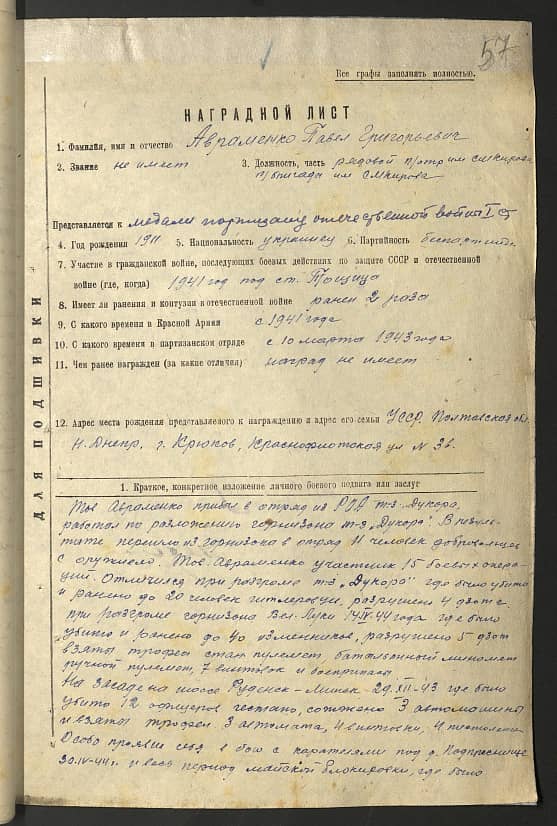 57
Все графы заполнять полностью.
НАГРАДНОЙ ЛИСТ
1. Фамилия, имя и отчество Авраменко Павел Григорьевич
2. Звание не имеет 3. Должность, часть рядовой п/отр им Кирова
п/бригады им Кирова
Представляется к медали партизану отечественной войны I ст
4. Год рождения 1911 5. Национальность украинец 6. Партийность беспартийн
7. Участие в гражданской войне, последующих боевых действиях по защите СССР и отечественной
войне (где, когда) 1941 год под ст. Тощица
8. Имеет ли ранения и контузии в отечественной войне ранен 2 раза
9. С какого времени в Красной Армии с 1941 года
10. С какого времени в партизанском отряде с 10 марта 1943 года
11. Чем ранее награжден (за какие отличия) наград не имеет
12. Адрес места рождения представляемого к награждению и адрес его семьи УССР. Полтавская обл.
Н. Днепр, г. Крюков, Краснофлотская ул N 36.
ДЛЯ ПОДШИВКИ
1. Краткое, конкретное изложение личного боевого подвига или заслуг
Тов Авраменко прибыл в отряд из РОА м-э Дукора,
работал по разложению горнизона м-э „Дукора". В резуль-
тате перешло из горнизона в отряд 11 человек добровольцев
с оружием. Тов. Авраменко участник 15 боевых опера-
ций. Отличился при разгроме м-э „Дукора" где было убито
и ранено до 20 человек гитлеровцы, разрушено 4 дзота.
При разгроме горнизона Вел. Луки 14/IV-44 года где было
убито и ранено до 40 изменников, разрушено 5 дзот
взяты трофеи стан пулемет, батальонный миномет
ручной пулемет, 7 винтовок и боеприпасы
На засаде на шоссе Руденск – Минск – 29.XII-43 где было
убито 12 офицеров гестапо, сожжено 3 автомашины
и взяты трофеи 3 автомата, 4 винтовки, 4 пистолета
Особо проявил себя в бою с карателями под д.
30.IV-44 г. и весь период майской блокировки, где было